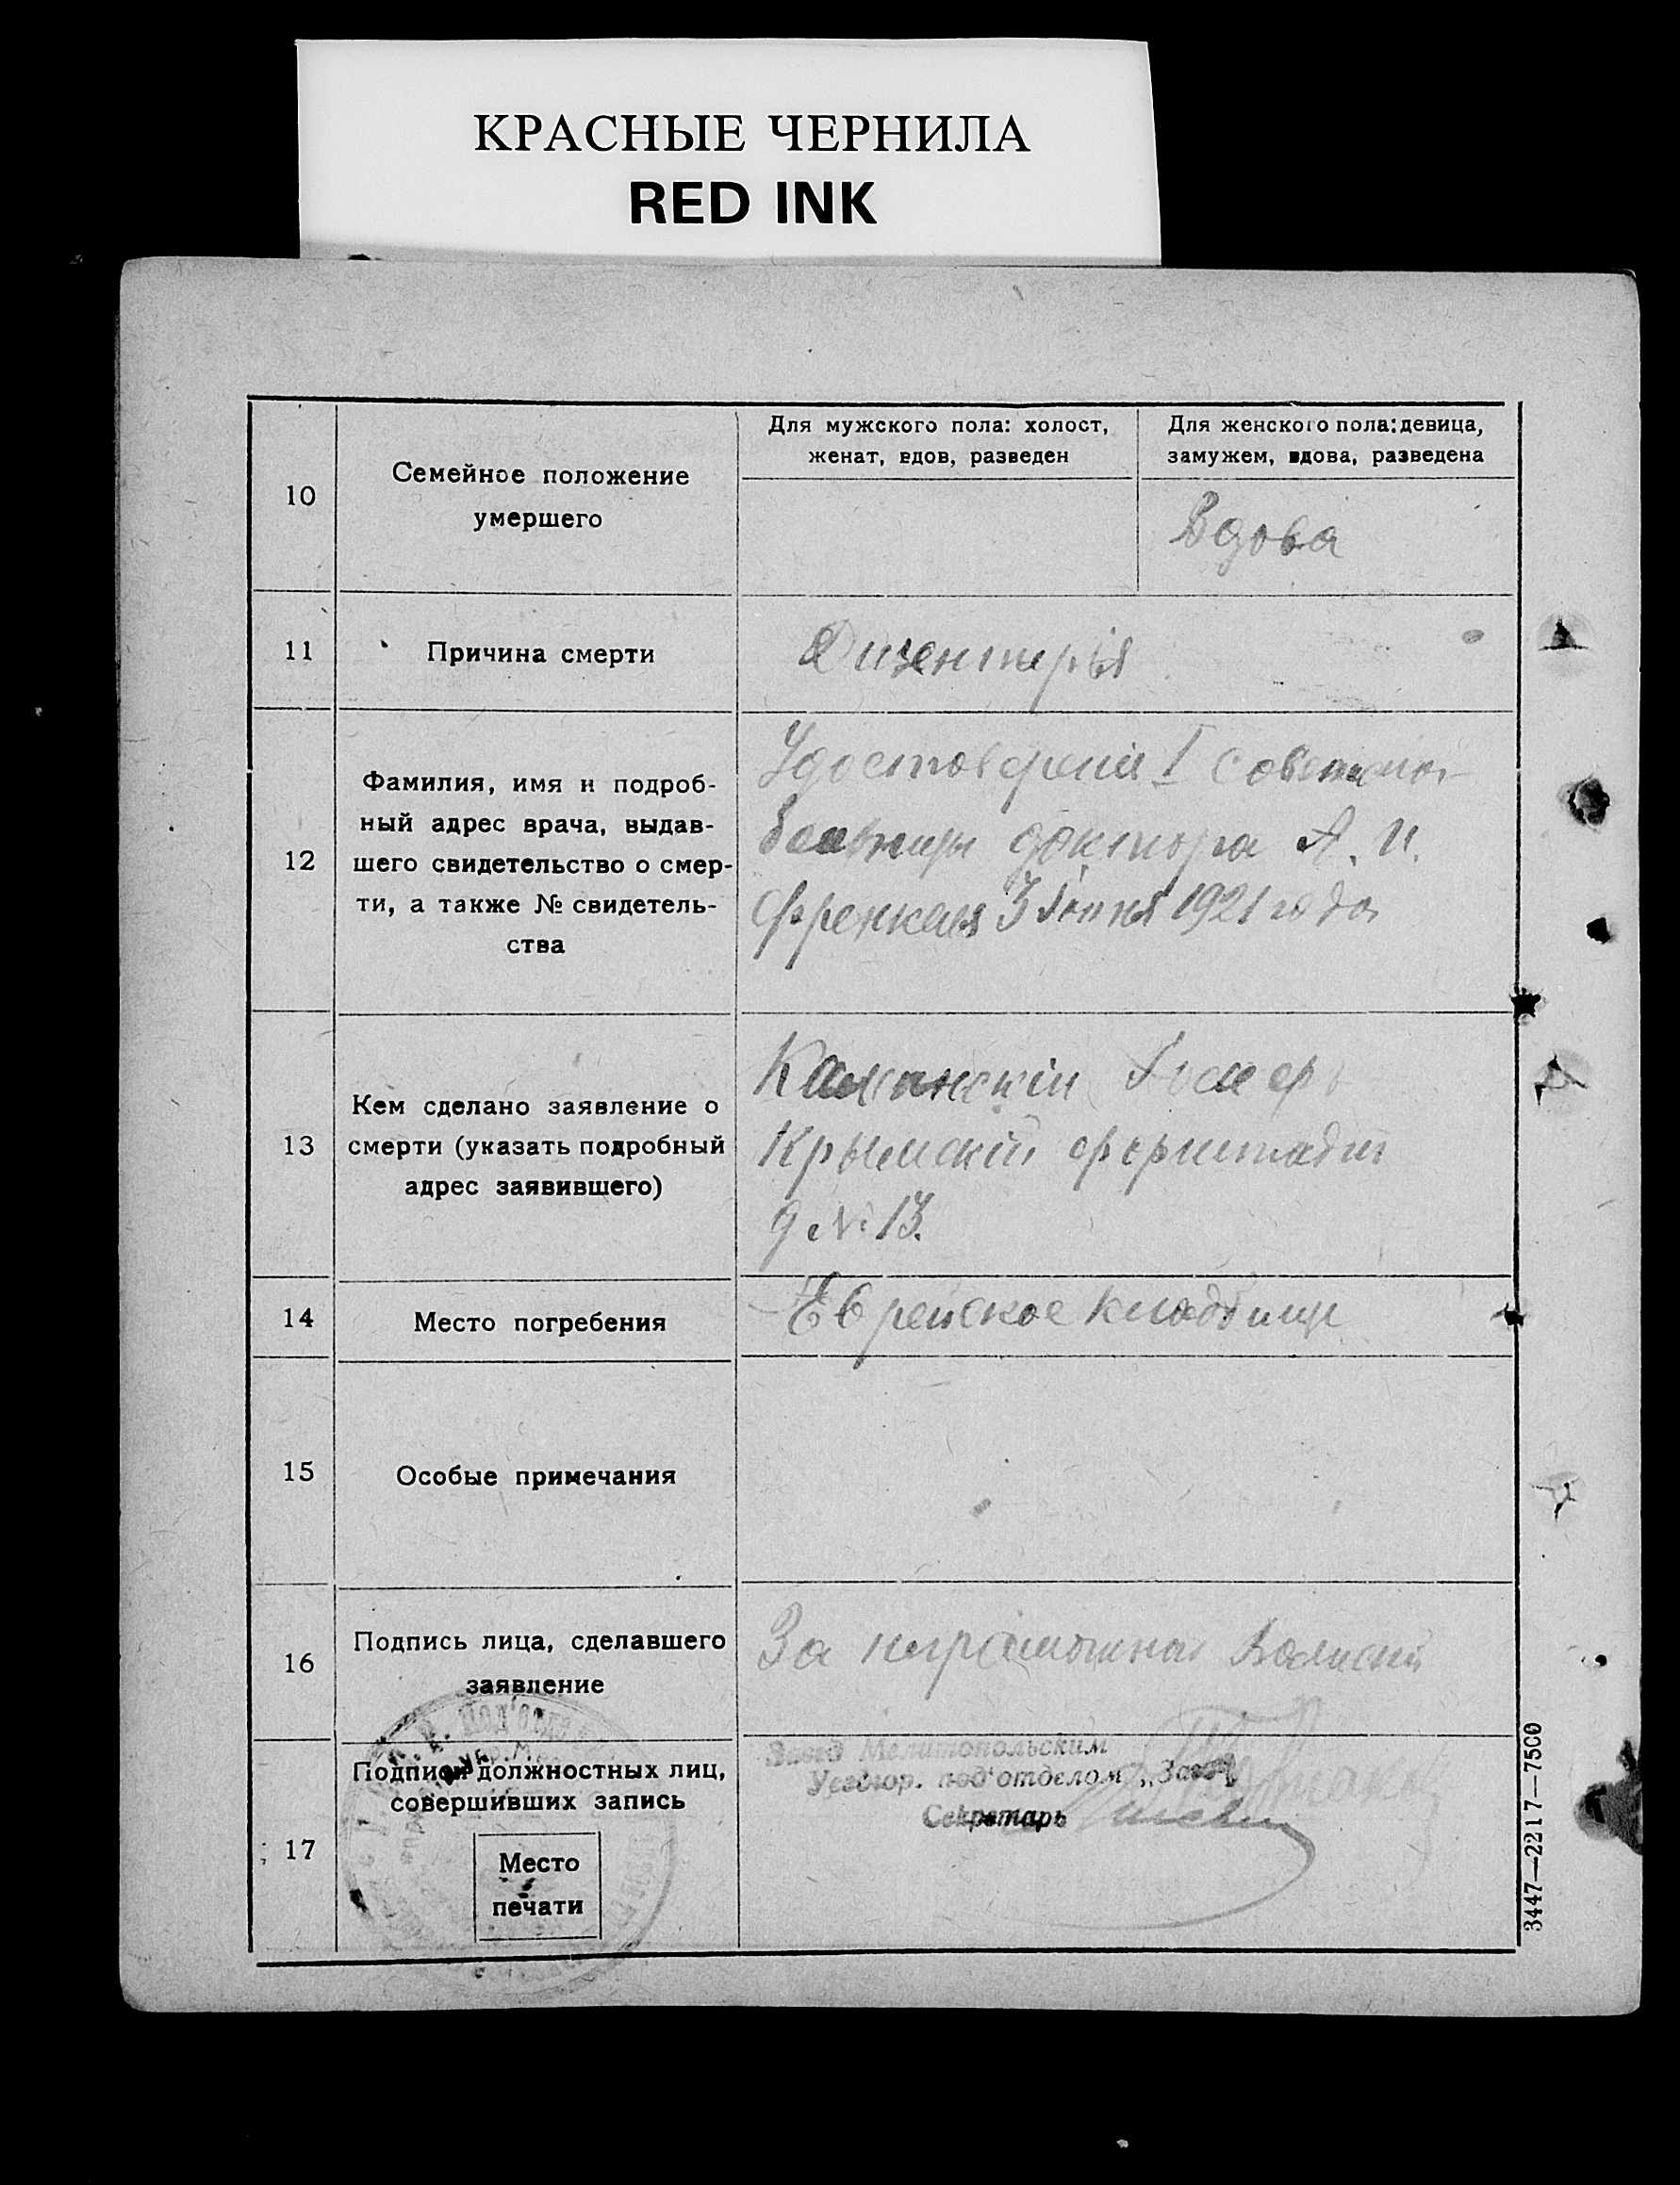 КРАСНЫЕ ЧЕРНИЛА
RED INK
10
Семейное положение
умершего
Для мужского пола: холост,
женат, вдов, разведен
Для женского пола: девица,
замужем, вдова, разведена
Вдова
11
Причина смерти
Дизентерія
12
Фамилия, имя и подроб-
ный адрес врача, выдав-
шего свидетельство о смер-
ти, а также № свидетель-
ства
Удостоверенія I Советской
больницы доктора А. И.
Френкеля 3 Іюня 1921 года
13
Кем сделано заявление о
смерти (указать подробный
адрес заявившего)
Крымскій форштадт
д № 13.
14
Место погребения
Еврейское кладбище
15
Особые примечания
16
Подпись лица, сделавшего
заявление
За
17
Подписи должностных лиц,
совершивших запись
Место
печати
Завед Мелитопольским
Уездгор. под'отделом „Загс"
Секретарь
3447—2217—7500